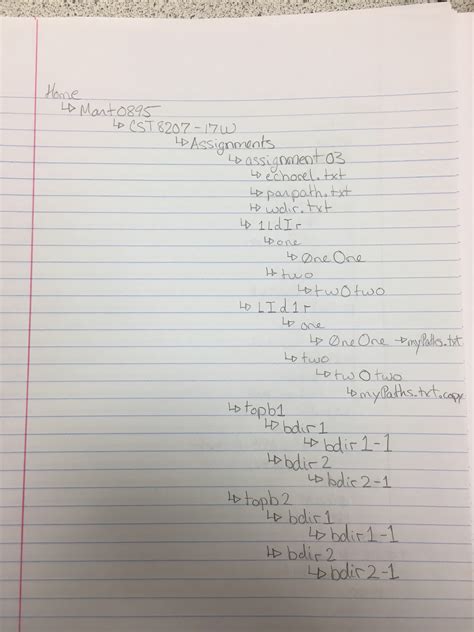 Home
↳ Mant0895
↳ CST8207-17W
↳ Assignments
↳ assignment03
↳ echorel.txt
↳ parpath.txt
↳ wdir.txt
↳ 1LdIr
↳ one
↳ 0neOne
↳ two
↳ tw0two
↳ LId1r
↳ one
↳ 0neOne → myPaths.txt
↳ two
↳ tw0two
↳ myPaths.txt.copy
↳ topb1
↳ bdir1
↳ bdir1-1
↳ bdir2
↳ bdir2-1
↳ topb2
↳ bdir1
↳ bdir1-1
↳ bdir2
↳ bdir2-1